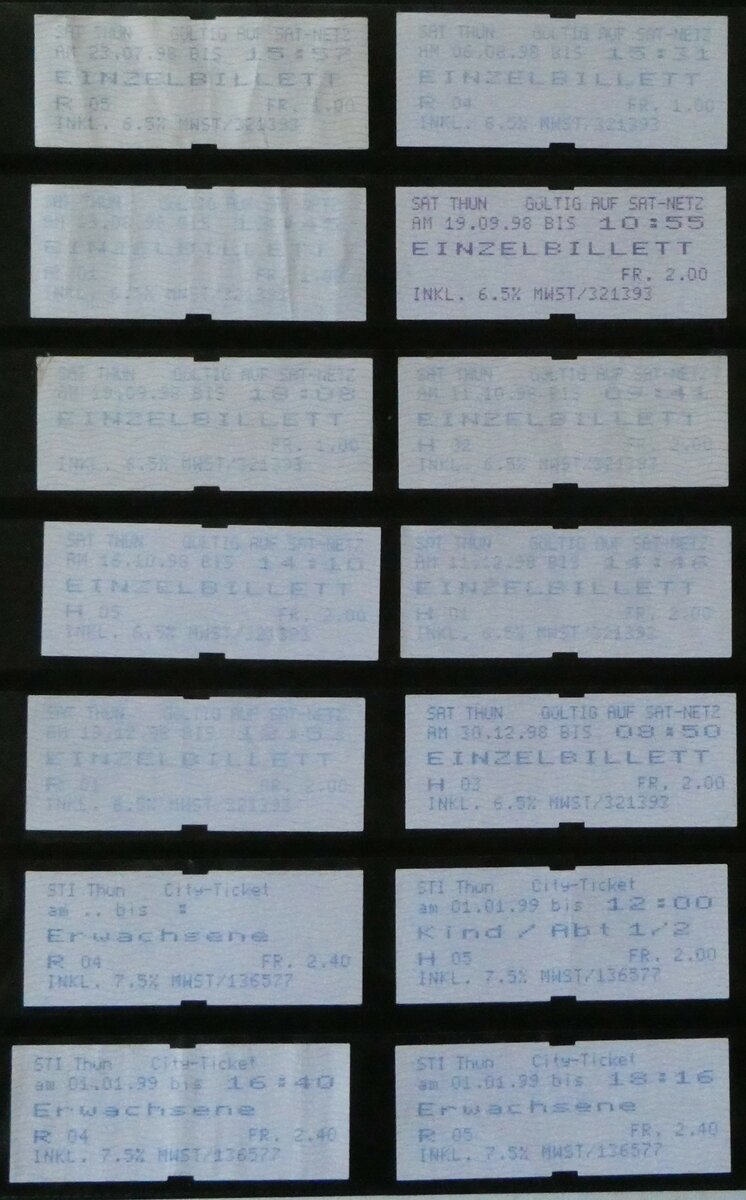 SAT THUN GÜLTIG AUF SAT-NETZ
AM 23.07.98 BIS 15:57
EINZELBILLETT
R 05 FR. 1.00
INKL. 6.5% MWST/321393
SAT THUN GÜLTIG AUF SAT-NETZ
AM 06.08.98 BIS 15:31
EINZELBILLETT
R 04 FR. 1.00
INKL. 6.5% MWST/321393
SAT THUN GÜLTIG AUF SAT-NETZ
AM BIS
EINZELBILLETT
R 01 FR. 1.00
INKL. 6.5% MWST/321393
SAT THUN GÜLTIG AUF SAT-NETZ
AM 19.09.98 BIS 10:55
EINZELBILLETT
FR. 2.00
INKL. 6.5% MWST/321393
SAT THUN GÜLTIG AUF SAT-NETZ
AM 19.09.98 BIS 18:08
EINZELBILLETT
FR. 1.00
INKL. 6.5% MWST/321393
SAT THUN GÜLTIG AUF SAT-NETZ
AM 11.10.98 BIS 09:41
EINZELBILLETT
H 02 FR. 2.00
INKL. 6.5% MWST/321393
SAT THUN GÜLTIG AUF SAT-NETZ
AM 16.10.98 BIS 14:10
EINZELBILLETT
H 05 FR. 2.00
INKL. 6.5% MWST/321393
SAT THUN GÜLTIG AUF SAT-NETZ
AM 11.12.98 BIS 14:46
EINZELBILLETT
H 01 FR. 2.00
INKL. 6.5% MWST/321393
SAT THUN GÜLTIG AUF SAT-NETZ
AM 19.12.98 BIS
EINZELBILLETT
R 01 FR. 2.00
INKL. 6.5% MWST/321393
SAT THUN GÜLTIG AUF SAT-NETZ
AM 30.12.98 BIS 08:50
EINZELBILLETT
H 03 FR. 2.00
INKL. 6.5% MWST/321393
STI Thun City-Ticket
am .. bis :
Erwachsene
R 04 FR. 2.40
INKL. 7.5% MWST/136577
STI Thun City-Ticket
am 01.01.99 bis 12:00
Kind / Abt 1/2
H 05 FR. 2.00
INKL. 7.5% MWST/136577
STI Thun City-Ticket
am 01.01.99 bis 16:40
Erwachsene
R 04 FR. 2.40
INKL. 7.5% MWST/136577
STI Thun City-Ticket
am 01.01.99 bis 18:16
Erwachsene
R 05 FR. 2.40
INKL. 7.5% MWST/136577